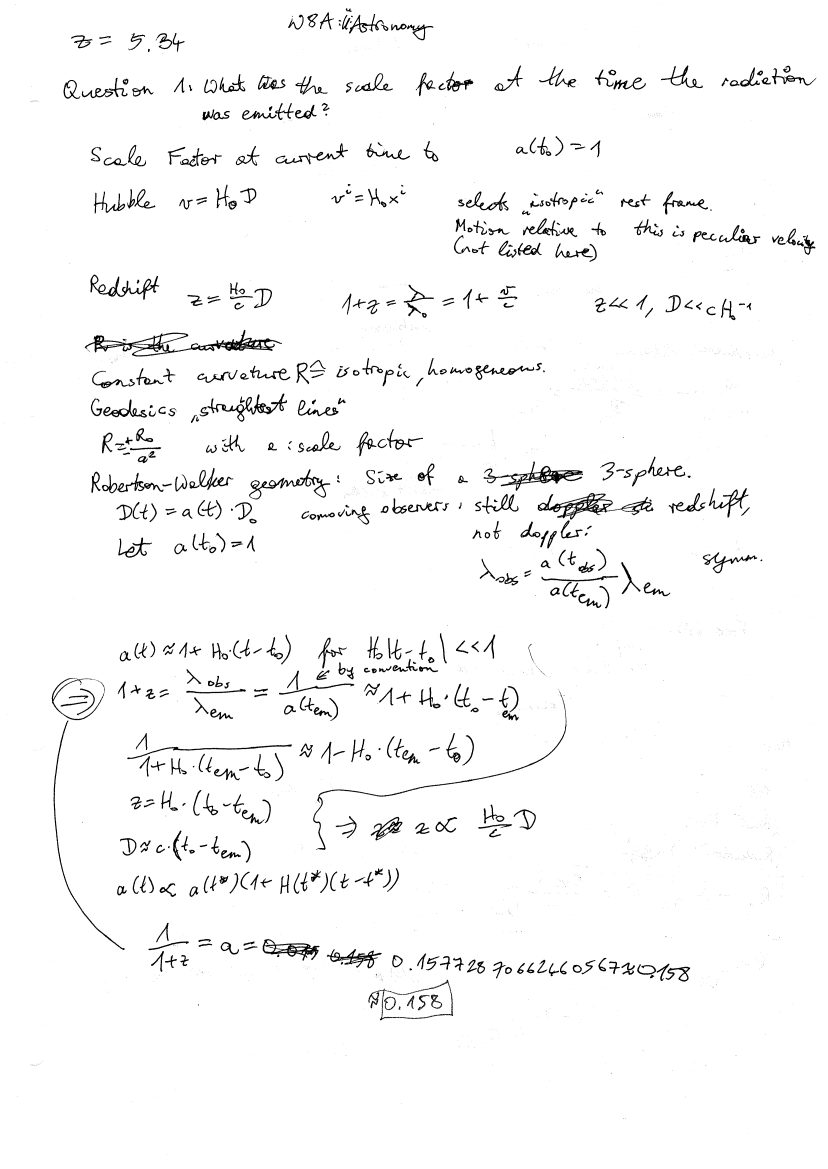 W8A: Astronomy
z = 5.34
Question 1: What was the scale factor at the time the radiation
was emitted?
Scale Factor at current time to a(t₀) = 1
Hubble v = H₀D vⁱ = H₀xⁱ selects „isotropic“ rest frame.
Motion relative to this is peculiar velocity
(not listed here)
Redshift z = H₀/c D 1+z = λ/λ₀ = 1 + v/c z<<1, D<<cH₀⁻¹
R is the curvature
Constant curvature R ≙ isotropic, homogeneous.
Geodesics „straightest lines“
R = ±R₀/a² with a: scale factor
Robertson-Walker geometry: Size of a 3-sphere 3-sphere.
D(t) = a(t)·D₀ comoving observers: still doppler redshift,
Let a(t₀) = 1 not doppler:
λobs = a(tobs)/a(tem) λem symm.
a(t) ≈ 1 + H₀·(t-t₀) for H₀|t-t₀| <<1
⇒ 1+z = λobs/λem = 1/a(tem) ← by convention ≈ 1 + H₀·(t₀-tem)
1/(1+H₀·(tem-t₀)) ≈ 1-H₀·(tem-t₀)
z = H₀·(t₀-tem)
⇒ z ∝ H₀/c D
D ≈ c·(t₀-tem)
a(t) ∝ a(t*)(1+H(t*)(t-t*))
1/(1+z) = a = 0.158 0.15772870662460567 ≈ 0.158
≈ 0.158